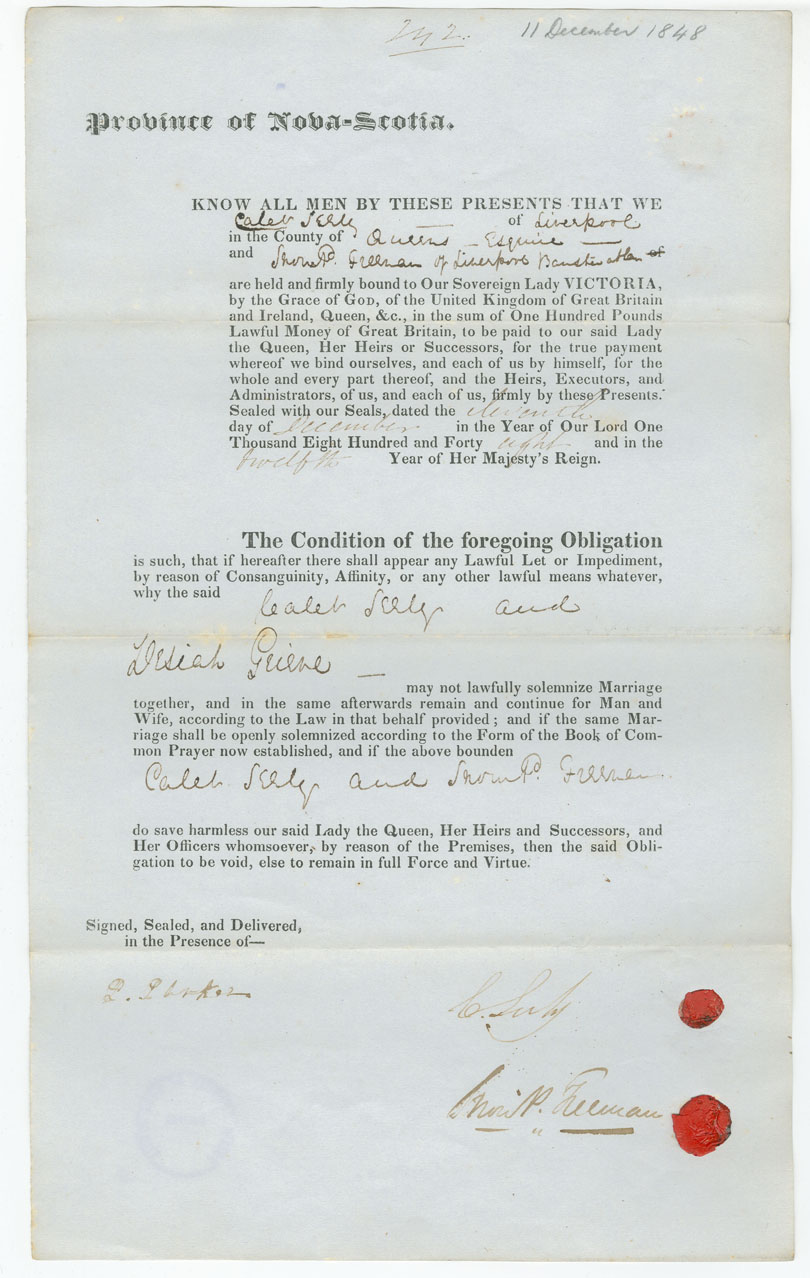 242.
11 December 1848
Province of Nova-Scotia.
KNOW ALL MEN BY THESE PRESENTS THAT WE
Caleb Seely — of Liverpool
in the County of Queens — Esquire —
and Snow Pd. Freeman of Liverpool Barrister at law of
are held and firmly bound to Our Sovereign Lady VICTORIA,
by the Grace of GOD, of the United Kingdom of Great Britain
and Ireland, Queen, &c., in the sum of One Hundred Pounds
Lawful Money of Great Britain, to be paid to our said Lady
the Queen, Her Heirs or Successors, for the true payment
whereof we bind ourselves, and each of us by himself, for the
whole and every part thereof, and the Heirs, Executors, and
Administrators, of us, and each of us, firmly by these Presents.
Sealed with our Seals, dated the eleventh
day of December in the Year of Our Lord One
Thousand Eight Hundred and Forty eight and in the
twelfth Year of Her Majesty's Reign.
The Condition of the foregoing Obligation
is such, that if hereafter there shall appear any Lawful Let or Impediment,
by reason of Consanguinity, Affinity, or any other lawful means whatever,
why the said
Caleb Seely and
Desiah Grieve —
may not lawfully solemnize Marriage
together, and in the same afterwards remain and continue for Man and
Wife, according to the Law in that behalf provided; and if the same Mar-
riage shall be openly solemnized according to the Form of the Book of Com-
mon Prayer now established, and if the above bounden
Caleb Seely and Snow Pd. Freeman
do save harmless our said Lady the Queen, Her Heirs and Successors, and
Her Officers whomsoever, by reason of the Premises, then the said Obli-
gation to be void, else to remain in full Force and Virtue.
Signed, Sealed, and Delivered,
in the Presence of—
Parker
C. Seely
Snow P. Freeman